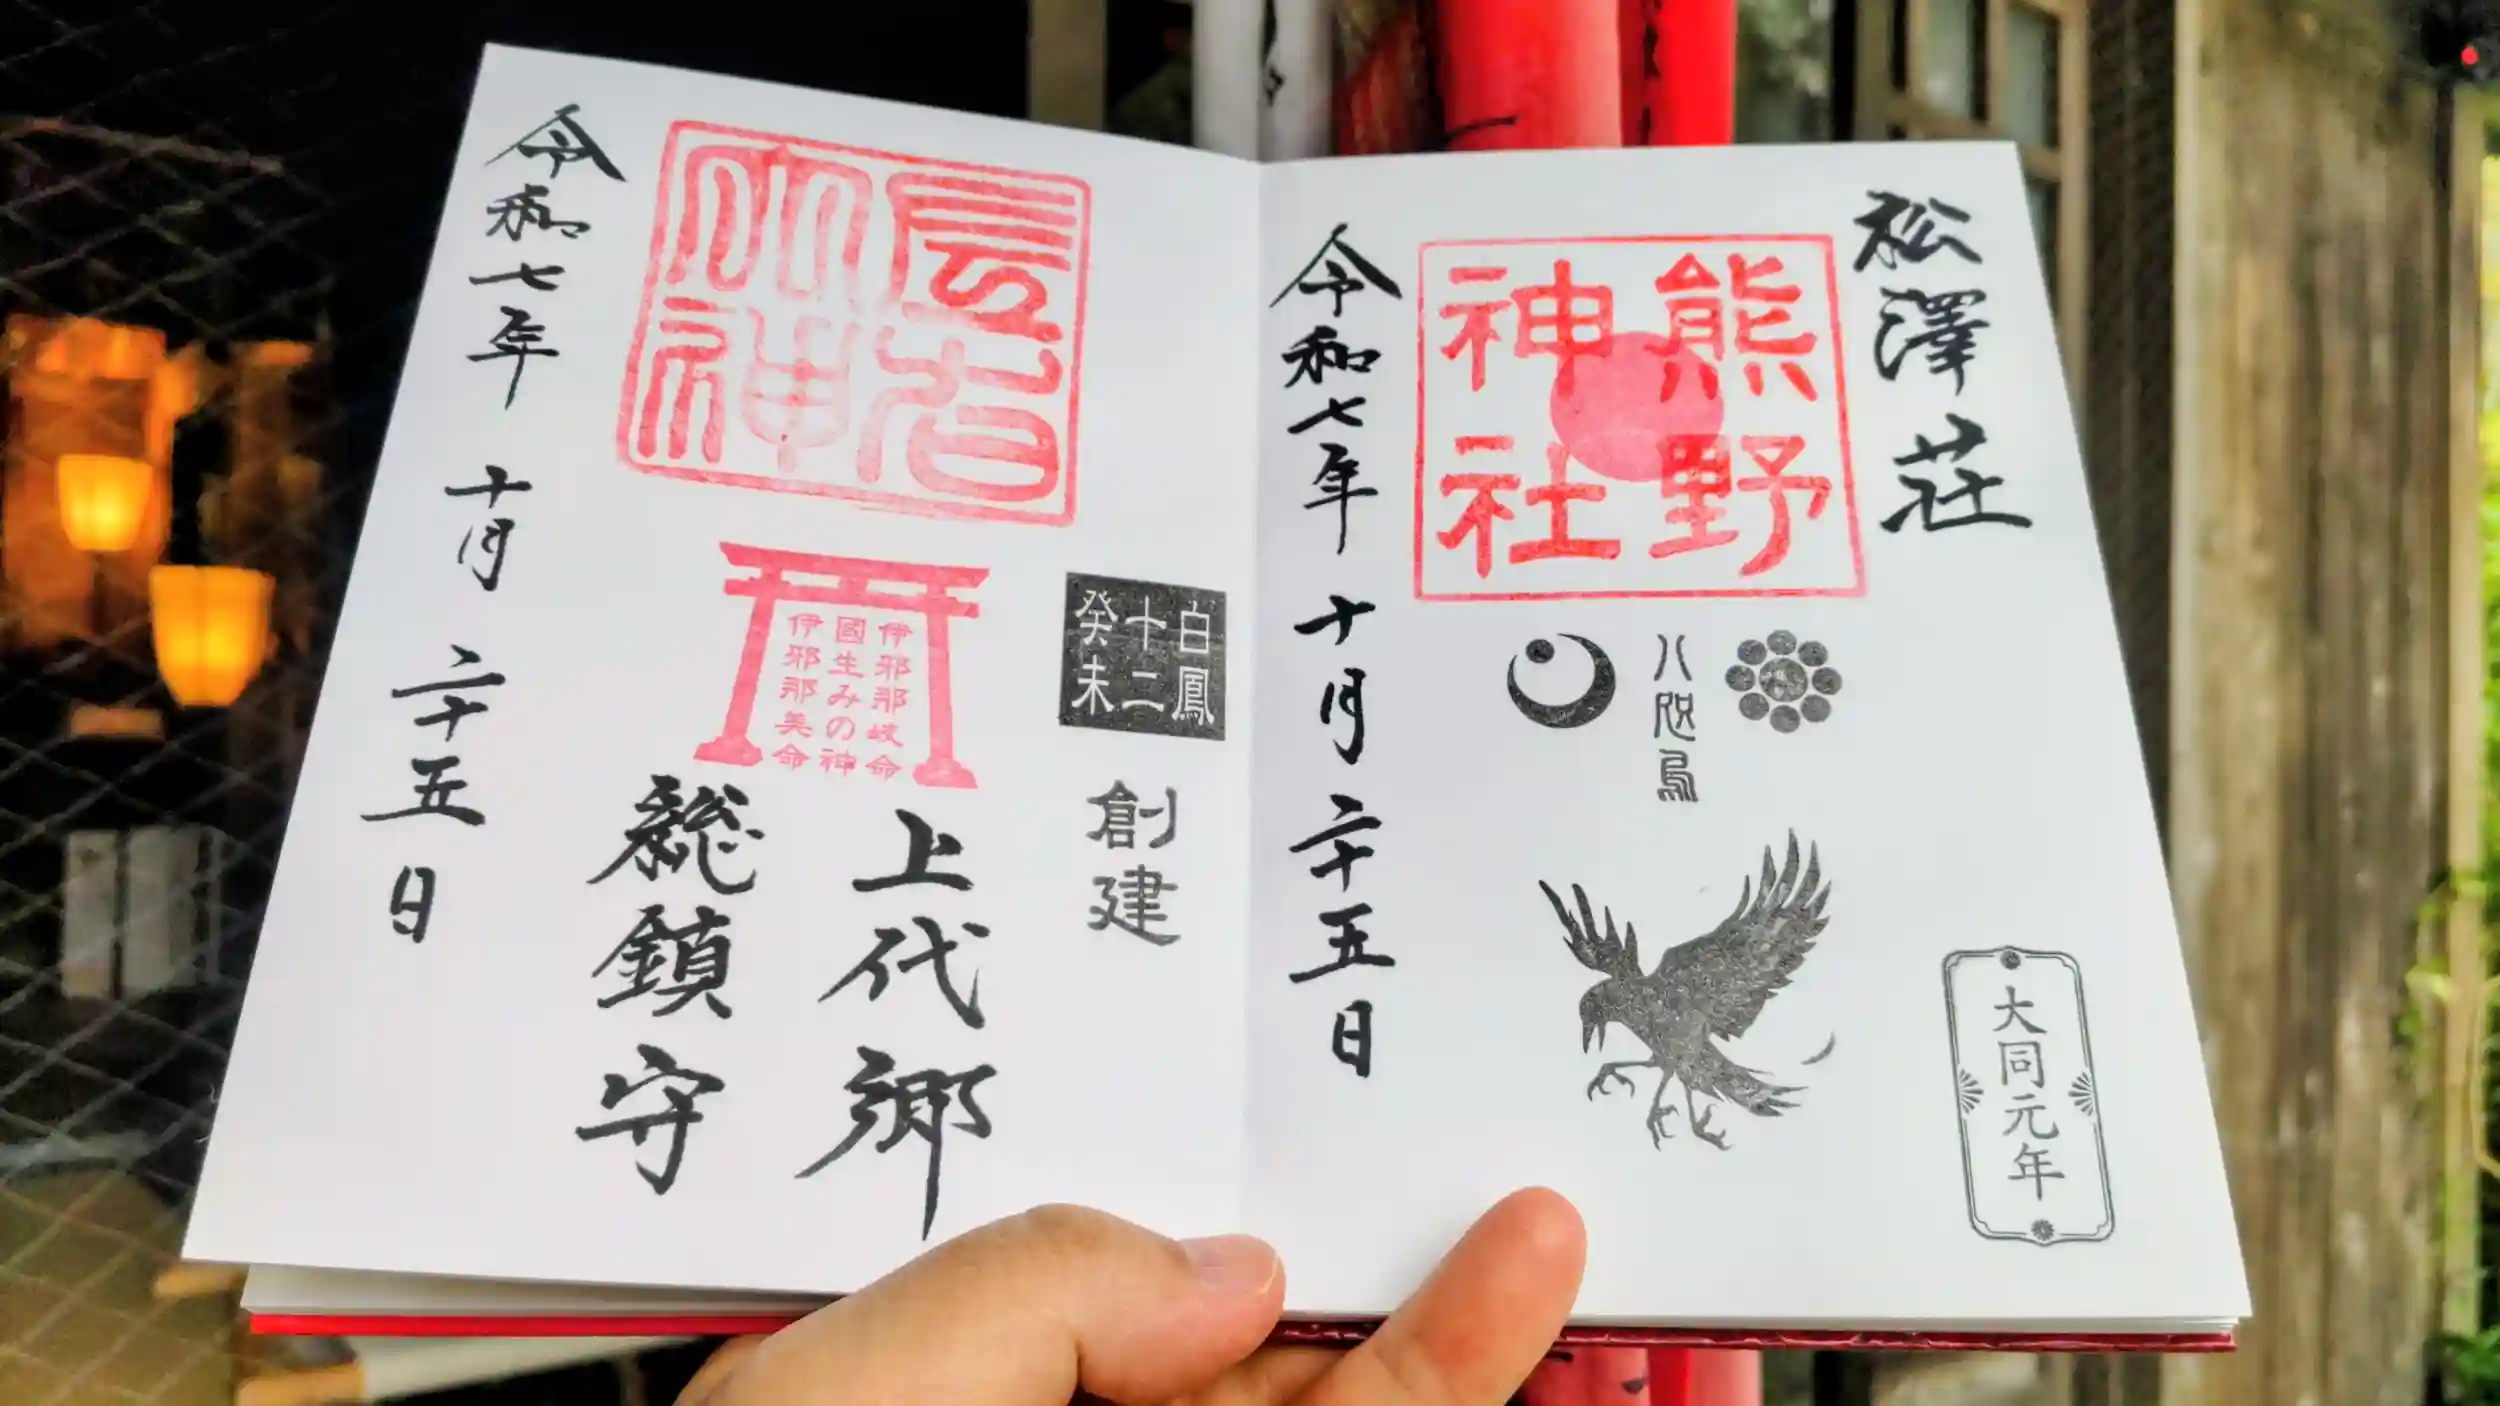 松澤荘
大同元年
熊野
神社
八咫烏
令和七年十月二十五日
白鳳
十二
癸未
創建
伊邪那岐命
國生みの神
伊邪那美命
上代郷
総鎮守
令和七年十月二十五日